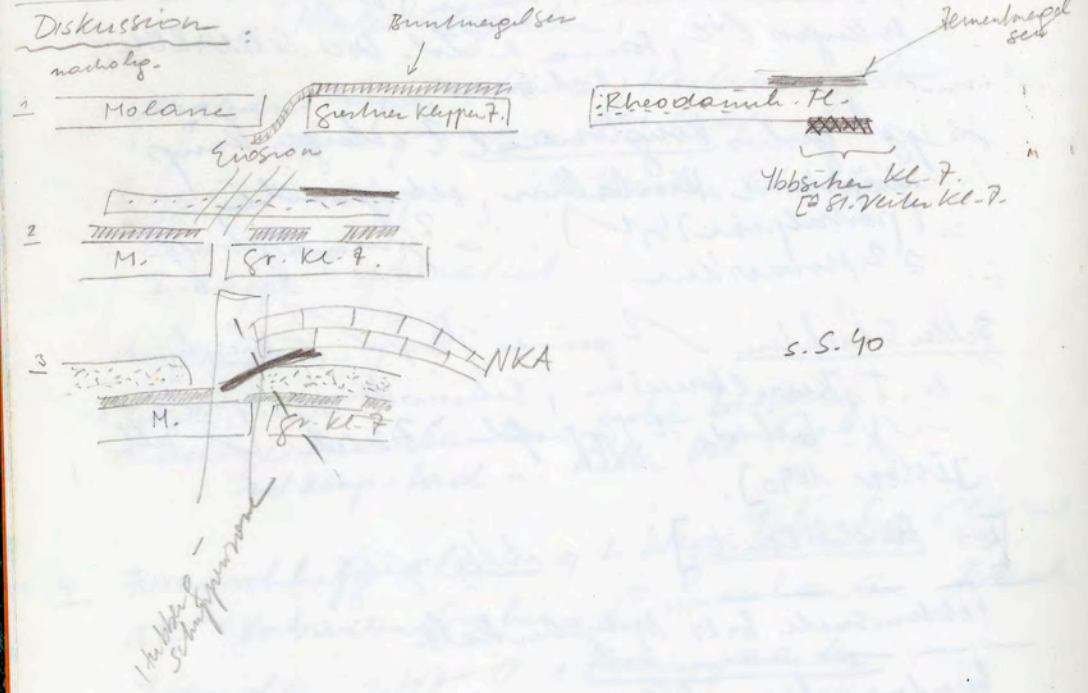 Diskussion :
nacholig.
Buntmergelser
Zementmergel
ser
1
Molasse
Grestner Klippen Z.
Rhenodanub. Fl.
Erosion
Ybbsitzer Kl. Z.
St. Veiter Kl. Z.
2
M.
Gr. Kl. Z.
3
NKA
s. S. 40
M.
Gr. Kl. Z
schuppenzone